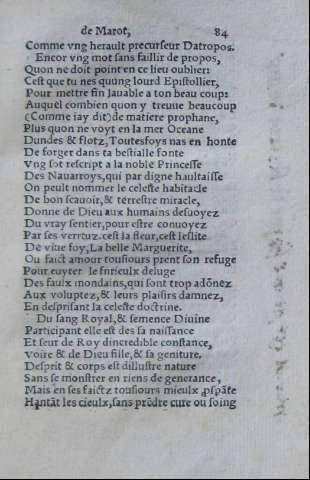 de Marot, 84
Comme vng herault precurſeur Datropos.
Encor vng mot ſans faillir de propos,
Quon ne doit point en ce lieu oublier:
Ceſt que tu nes quung lourd Epiſtollier,
Pour mettre fin lauable a ton beau coup:
Auquel combien quon y treuue beaucoup
(Comme iay dit)de matiere prophane,
Plus quon ne voyt en la mer Oceane
Dundes & flotz, Toutesfoys nas en honte
De forger dans ta beſtialle fonte
Vng ſot reſcript a la noble Princeſſe
Des Nauarroys, qui par digne haultaiſſe
On peult nommer le celeſte habitacle
De bon ſcauoir, & terreſtre miracle,
Donne de Dieu aux humains deſuoyez
Du vray ſentier, pour eſtre conuoyez
Par ſes vertuz. ceſt la fleur, ceſt leſlite
De viue foy, La belle Marguerite,
Ou ſaict amour touſiours prent ſon refuge
Pour euyter le
Des faulx mondains, qui ſont trop adōnez
Aux voluptez, & leurs plaiſirs damnez,
En deſpriſant la celeſte doctrine.
Du ſang Royal, & ſemence Diuine
Participant elle eſt des ſa naiſſance
Et ſeur de Roy dincredible conſtance,
Voire & de Dieu fille, & ſa geniture.
Deſprit & corps eſt dilluſtre nature
Sans ſe monſtrer en riens de generante,
Mais en ſes faictz touſiours mieulx ꝓſpāte
Hantāt les cieulx, ſans prēdre cure ou ſoing